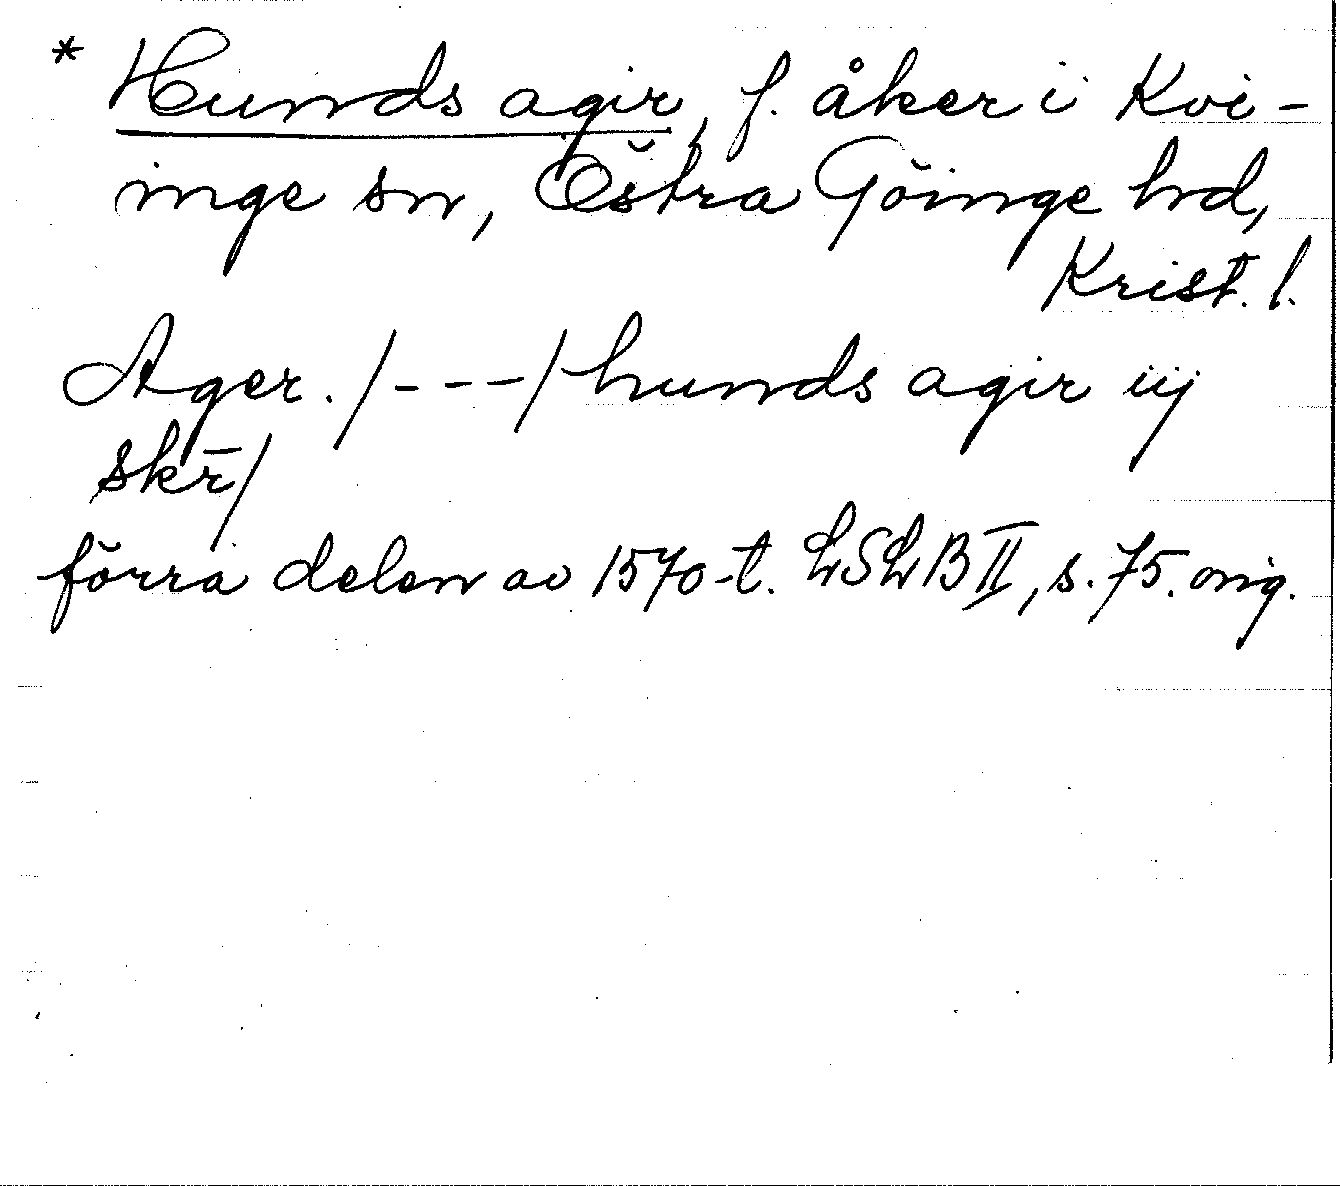 * Hunds agir, f. åker i Kvi-
inge sn, Östra Göinge hd,
Krist. l.
Ager. /---/ hunds agir iij
skr̄/
förra delen av 1570-t. LSLB II, s. 75. orig.